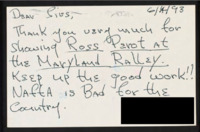 6/14/93
Dear Sirs,
Thank you very much for
showing Ross Perot at
the Maryland Ralley.
Keep up the good work!!
Nafta is Bad for the
Country.